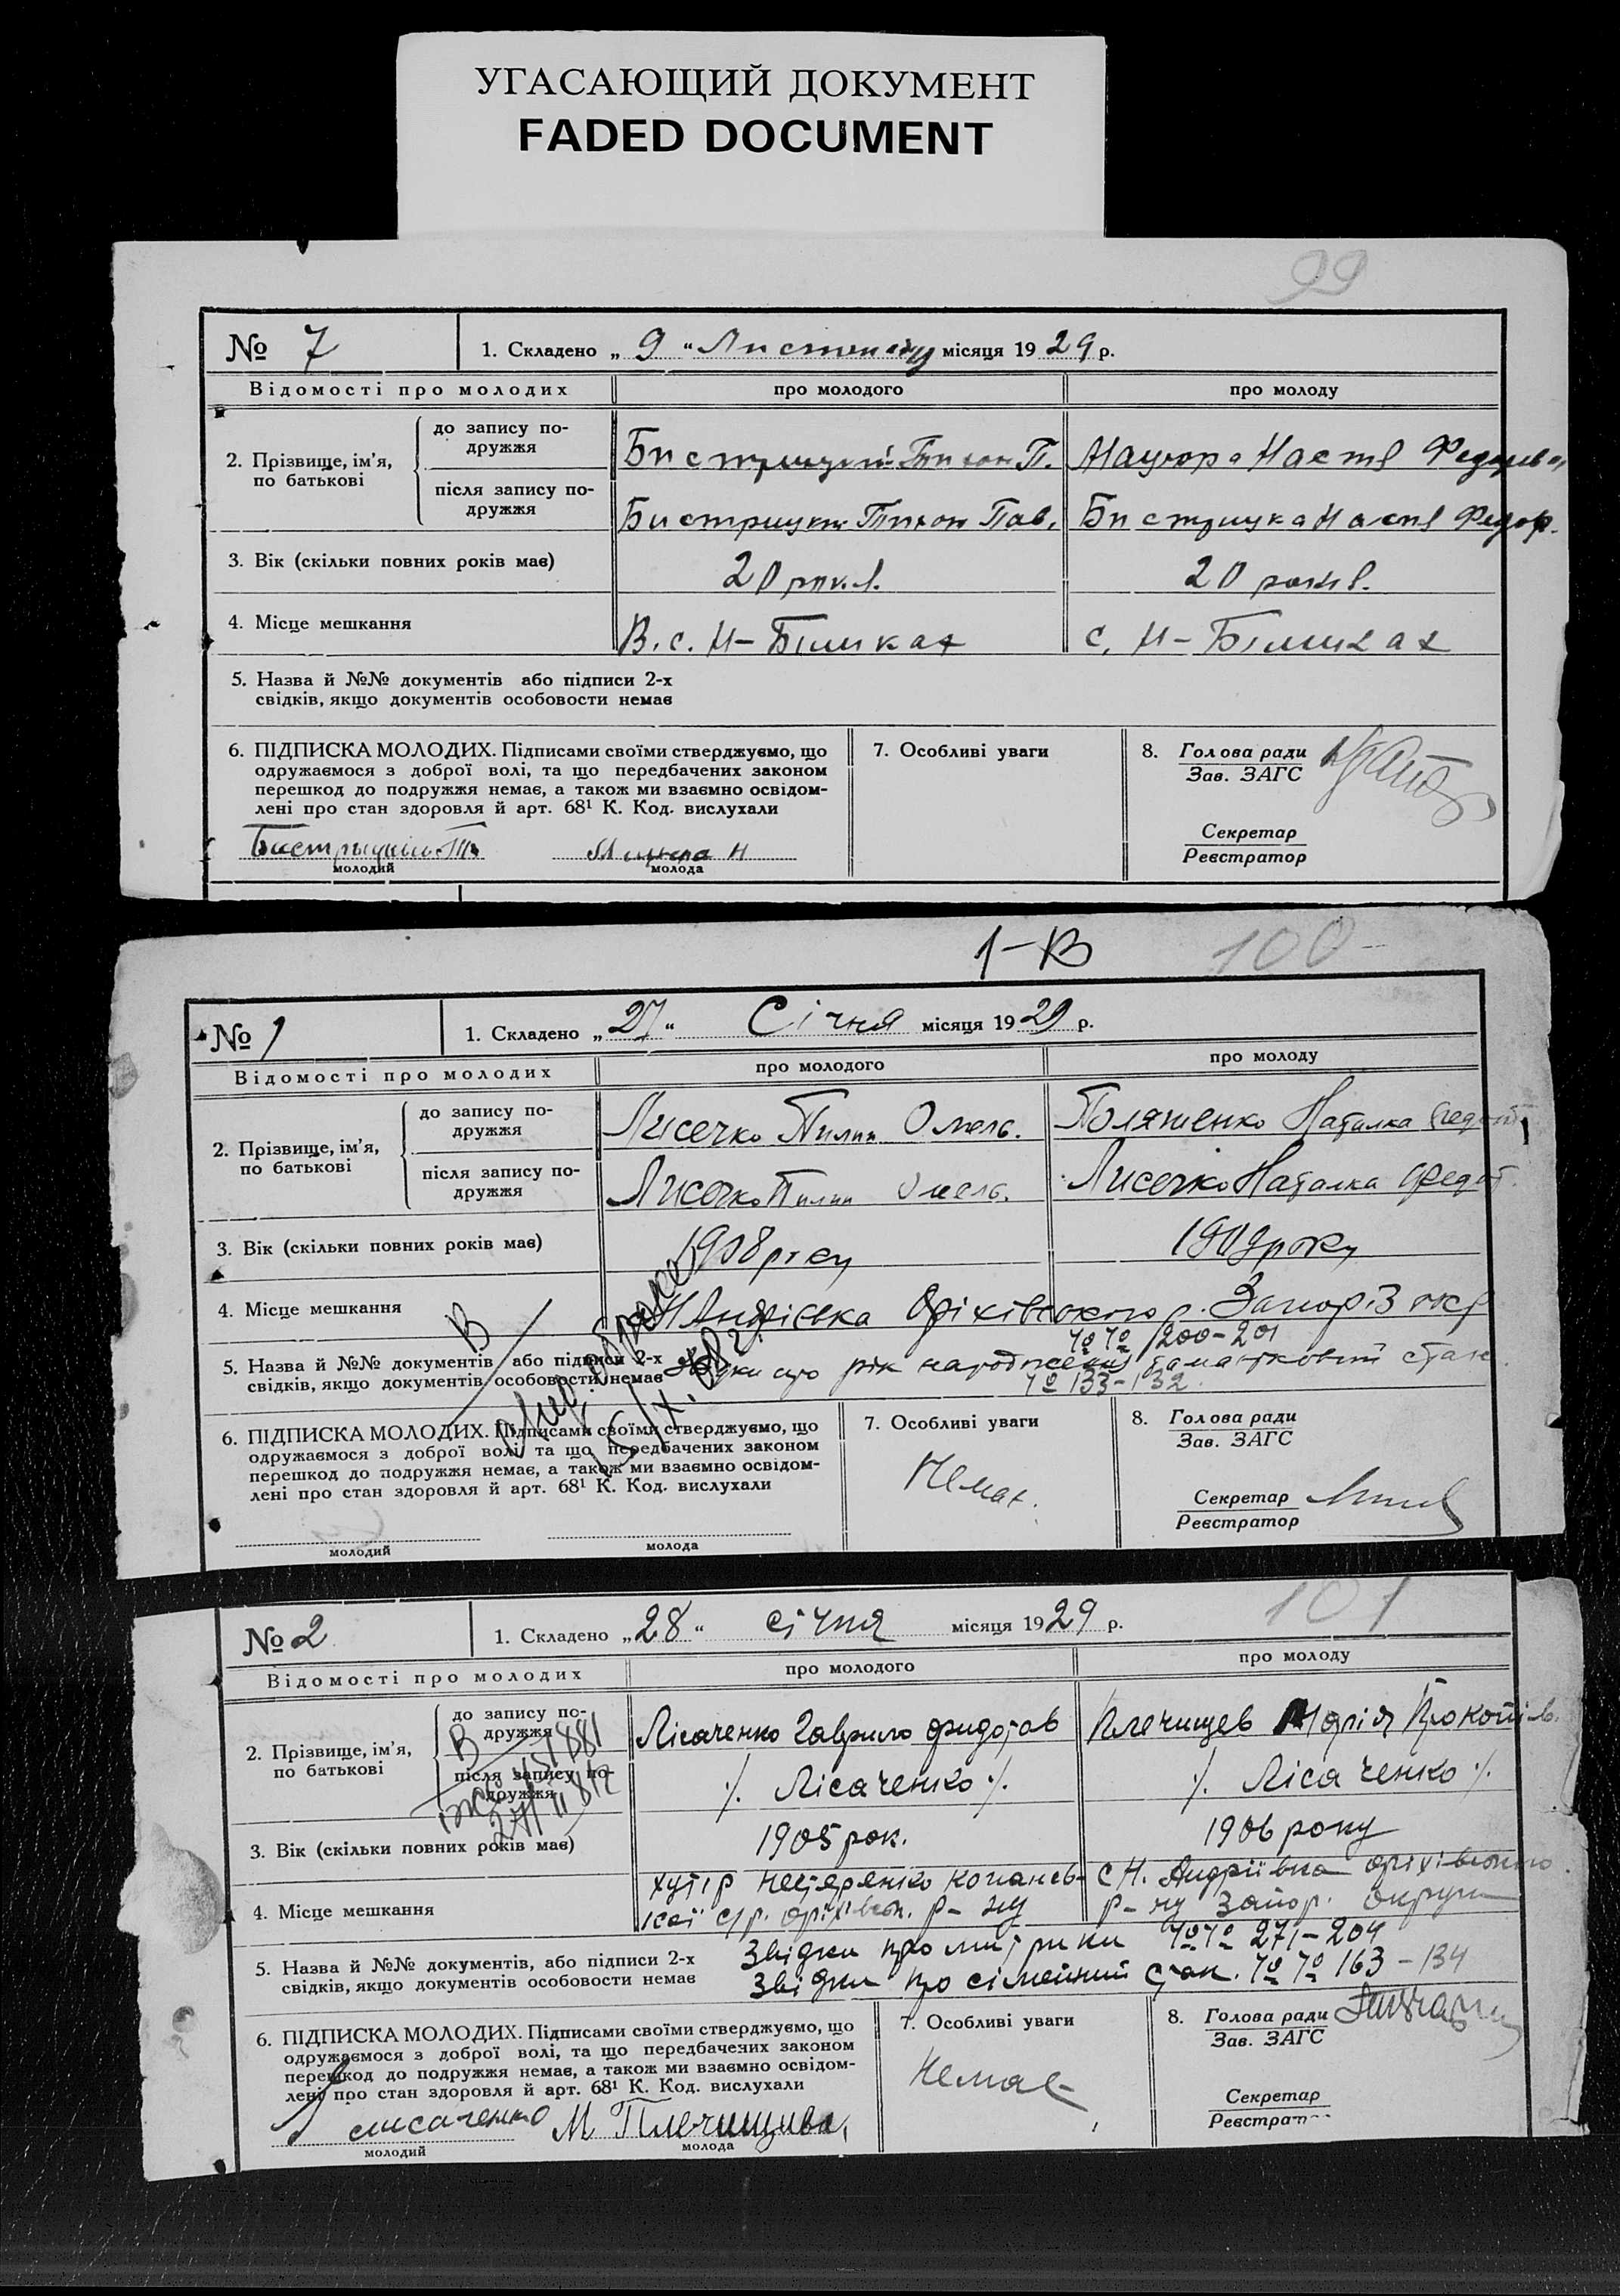 УГАСАЮЩИЙ ДОКУМЕНТ
FADED DOCUMENT
99
№ 7
1. Складено „ 9 “ Листопаду місяця 1929 р.
Відомості про молодих
про молодого
про молоду
2. Прізвище, ім’я, по батькові
до запису по-
дружжя
Бистрицкий Тихон П.
Мацюра Настя
після запису по-
дружжя
Бистрицкий Тихон Пав.
Бистрицка Настя Федор.
3. Вік (скільки повних років має)
20 рок.
20 років.
4. Місце мешкання
В. с. Н-Біликах
с. Н-Біликах
5. Назва й №№ документів або підписи 2-х
свідків, якщо документів особовости немає
6. ПІДПИСКА МОЛОДИХ. Підписами своїми стверджуємо, що
одружаємося з доброї волі, та що передбачених законом
перешкод до подружжя немає, а також ми взаємно освідом-
лені про стан здоровля й арт. 68¹ К. Код. вислухали
молодий
молода
7. Особливі уваги
8. Голова ради
Зав. ЗАГС
Секретар
Реєстратор
1-В
100
№ 1
1. Складено „ 27 “ Січня місяця 1929 р.
Відомості про молодих
про молодого
про молоду
2. Прізвище, ім’я,
по батькові
до запису по-
дружжя
Лисечко Пилип Омель.
Поляшенко Наталка Федот
після запису по-
дружжя
Лисечко Пилип Омель.
Лисечко Наталка Федот.
3. Вік (скільки повних років має)
1908 року
1909 року
4. Місце мешкання
Н Андріївка Оріхівського р. Запоріз окр
В
5. Назва й №№ документів або підписи 2-х
свідків, якщо документів особовости немає
№№ 200-201
про рік народження та стан.
№ 133-132
6. ПІДПИСКА МОЛОДИХ. Підписами своїми стверджуємо, що
одружаємося з доброї волі, та що передбачених законом
перешкод до подружжя немає, а також ми взаємно освідом-
лені про стан здоровля й арт. 68¹ К. Код. вислухали
молодий
молода
7. Особливі уваги
Немає.
8. Голова ради
Зав. ЗАГС
Секретар
Реєстратор
101
№ 2
1. Складено „ 28 “ січня місяця 1929 р.
Відомості про молодих
про молодого
про молоду
2. Прізвище, ім’я,
по батькові
до запису по-
дружжя
Лісаченко Гаврило Фидотов
Плечищев Марія Прокопів.
після запису по-
дружжя
·/. Лісаченко ·/.
·/. Лісаченко ·/.
В
3. Вік (скільки повних років має)
1905 рок.
1906 року
4. Місце мешкання
хутір Нестеренко Копанев-
ської с/р. оріхівськ. р-ну
с Н. Андріївка оріхівського
р-ну Запор. округи
5. Назва й №№ документів, або підписи 2-х
свідків, якщо документів особовости немає
Звідки про митрики №№ 271-204
Звідки про сімейний стан. №№ 163-134
6. ПІДПИСКА МОЛОДИХ. Підписами своїми стверджуємо, що
одружаємося з доброї волі, та що передбачених законом
перешкод до подружжя немає, а також ми взаємно освідом-
лені про стан здоровля й арт. 68¹ К. Код. вислухали
лисаченко
М Плечищива,
молодий
молода
7. Особливі уваги
Немає
8. Голова ради
Зав. ЗАГС
Секретар
Реєстратор